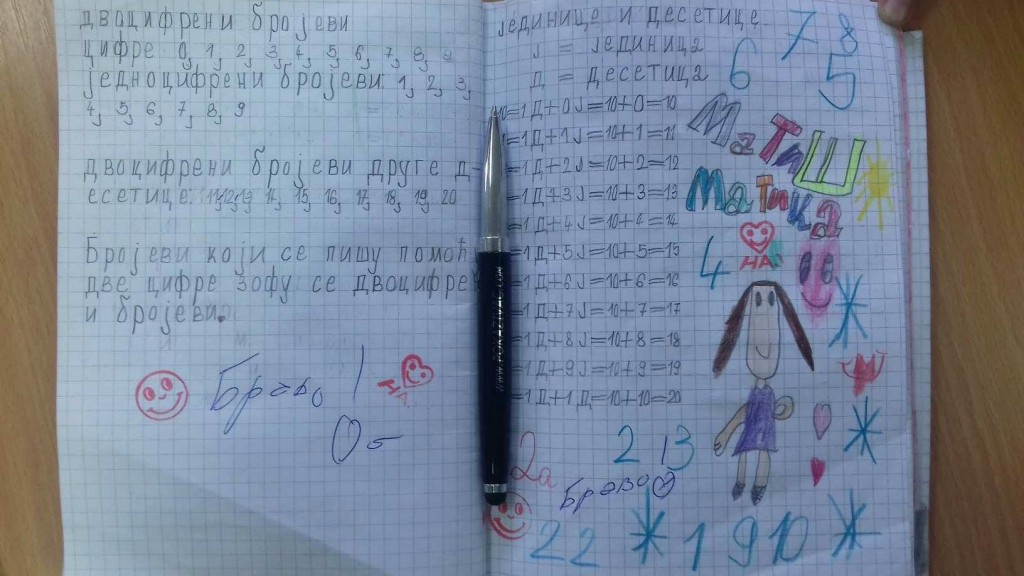 двоцифрени бројеви
цифре 0, 1, 2, 3, 4, 5, 6, 7, 8, 9
једноцифрени бројеви: 1, 2, 3,
4, 5, 6, 7, 8, 9
двоцифрени бројеви друге д-
есетице: 11, 12, 13, 14, 15, 16, 17, 18, 19, 20
Бројеви који се пишу помоћ
две цифре зофу се двоцифрен
и бројеви.
Браво
НА
јединице и десетице
Ј = јединица
Д = десетица
10=1Д+0Ј=10+0=10
=1Д+1Ј=10+1=11
=1Д+2Ј=10+2=12
=1Д+3Ј=10+3=13
=1Д+4Ј=10+4=14
=1Д+5Ј=10+5=15
=1Д+6Ј=10+6=16
=1Д+7Ј=10+7=17
=1Д+8Ј=10+8=18
=1Д+9Ј=10+9=19
=1Д+1Д=10+10=20
7 8
6 5
МатиШ
Матика
4
НА
2а
2 13
Браво
22 1 9 10